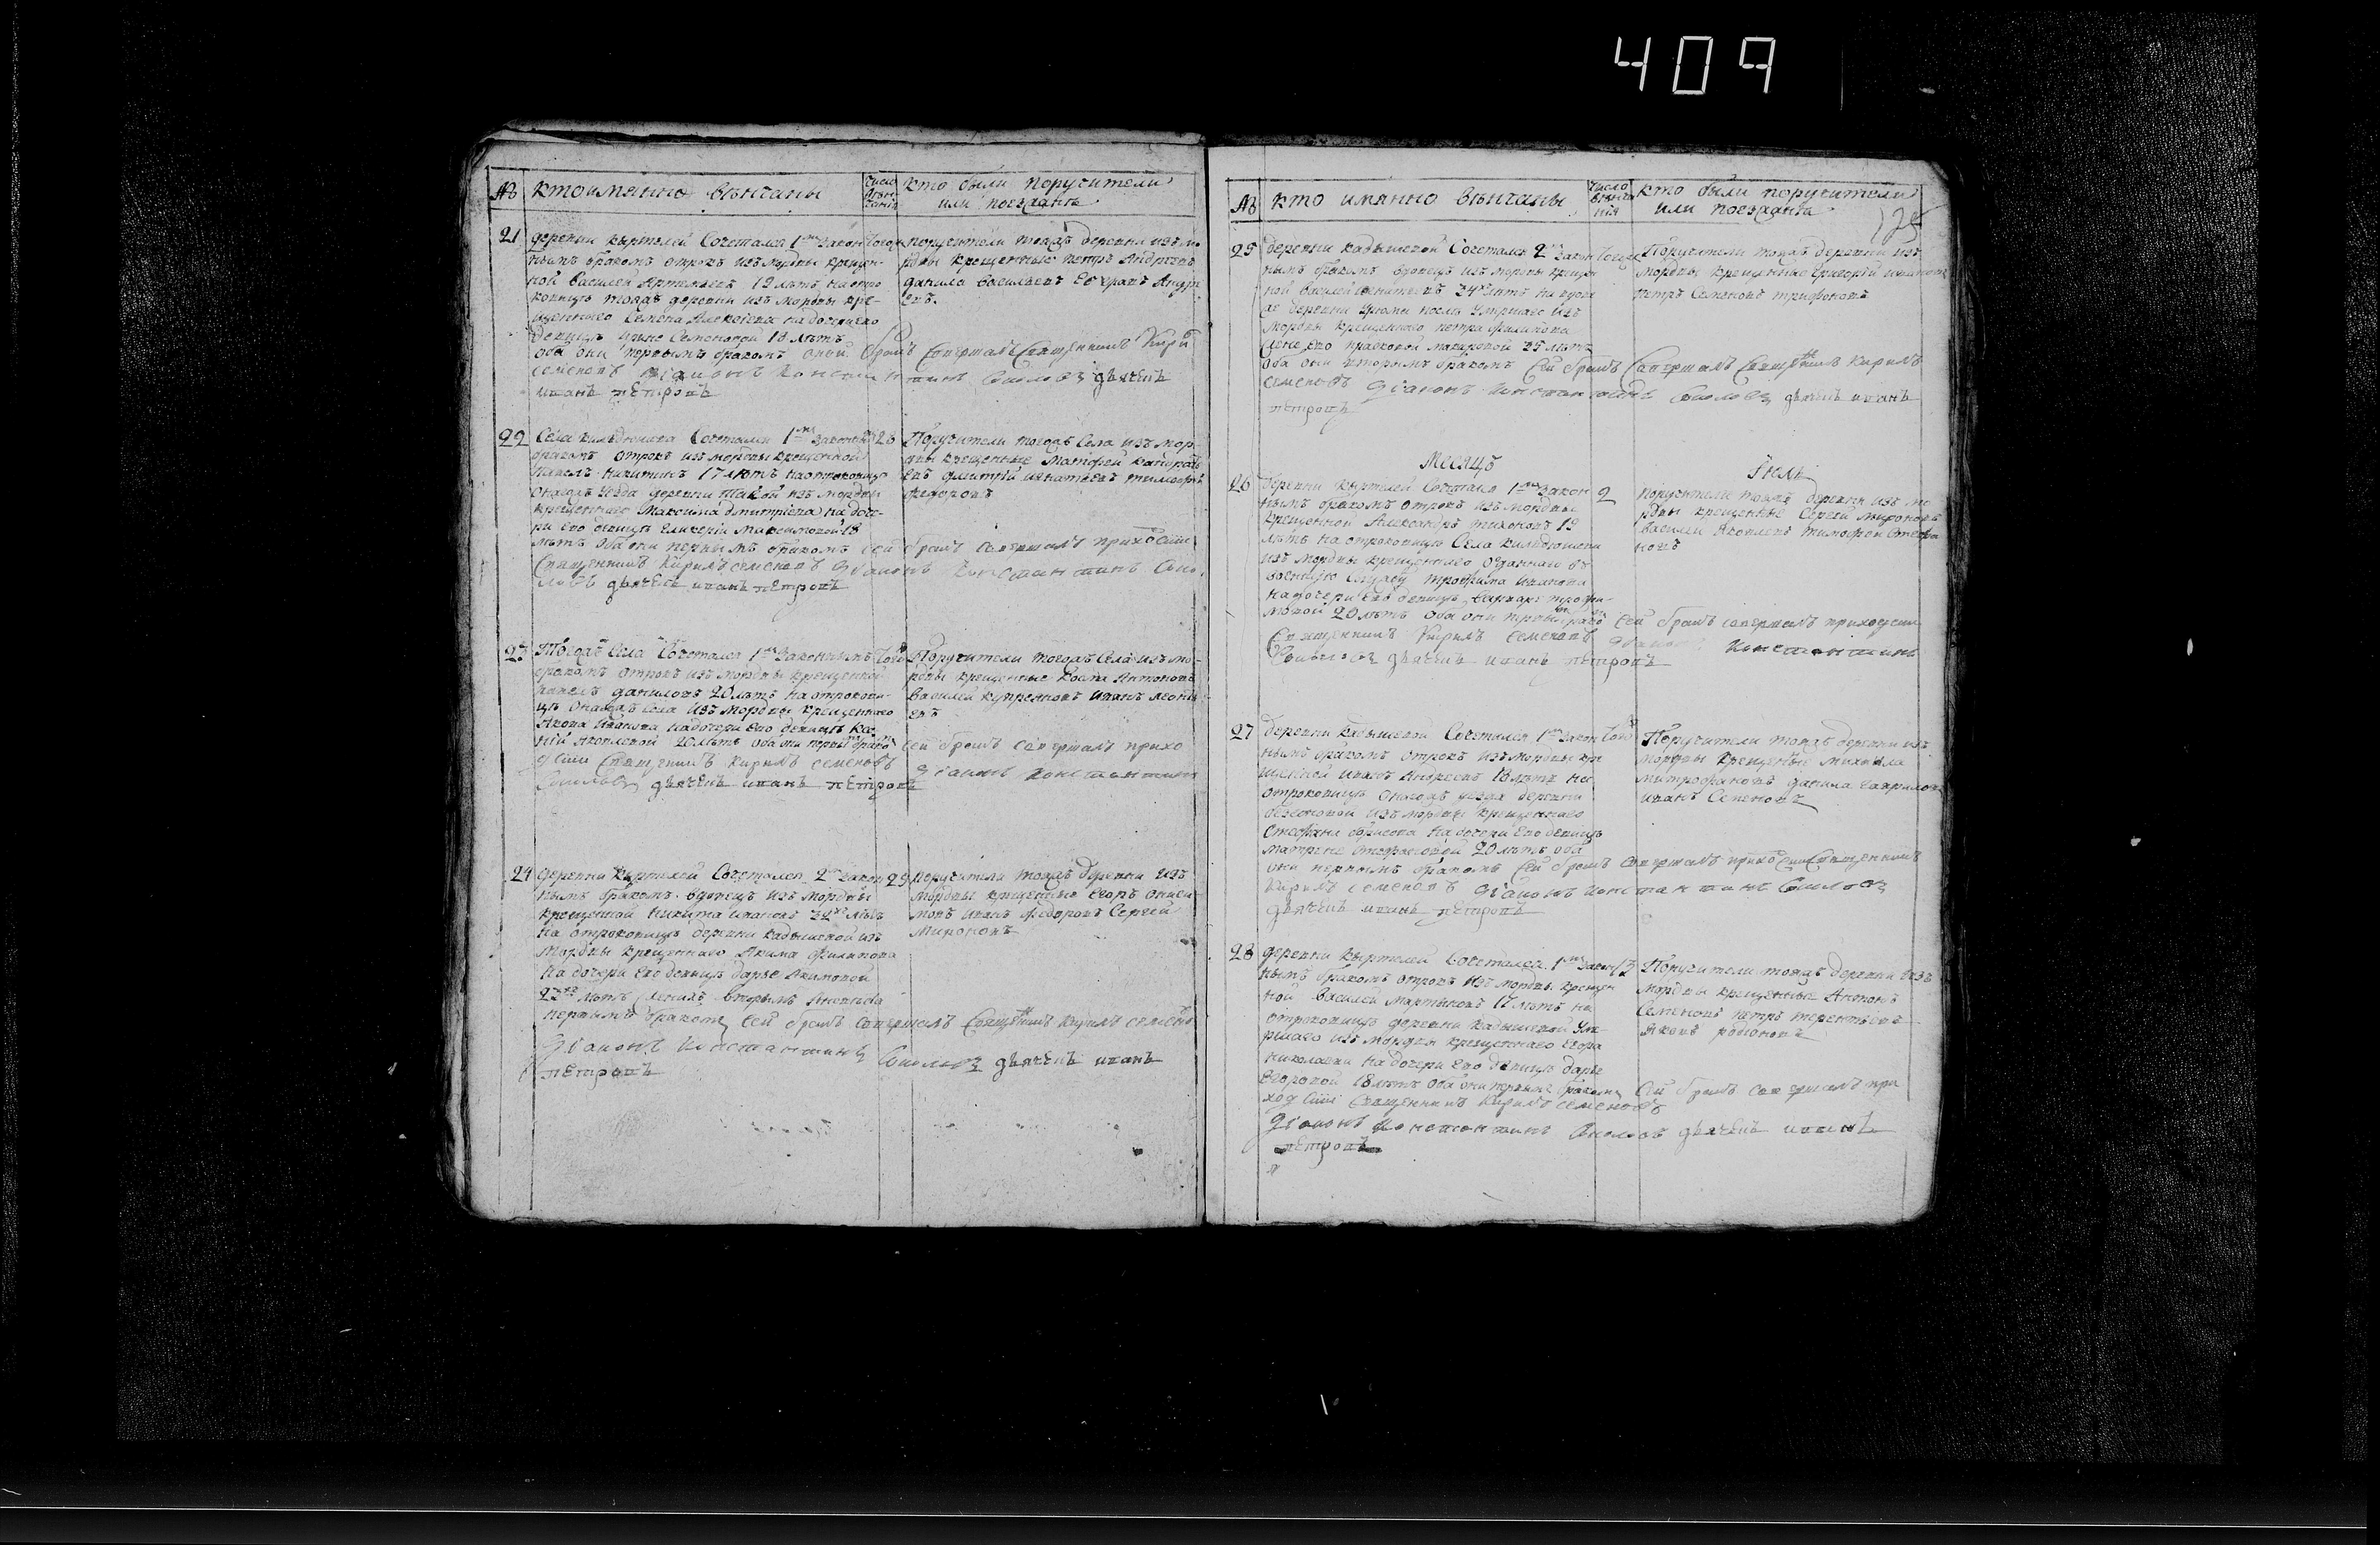 409
№ кто имянно венчаны число венчания кто были поручители
или поезжанѣ
21 деревни Кыртелей Сочетался 1мъ закон того
нымъ бракомъ отрокъ изъ мордвы крещен-
ной Василей Артемьевъ 19 лѣтъ на отро
ковицѣ тояжъ деревни изъ мордвы кре-
щеннаго Семена Алексѣева на дочери ево
девицѣ Ирине Семеновой 18 лѣтъ
оба они первымъ бракомъ оной бракъ совершалъ священникъ Кирилъ
Семеновъ диаконъ Константинъ Соколовъ дьячекъ
иванъ петровъ
поручители тояжъ деревни изъ мо
рдвы крещенные петръ Андреевъ
данила Васильевъ Евграфъ Андре
евъ.
22 Села Кильдюшева Сочетался 1мъ законнымъ 28
бракомъ отрокъ изъ мордвы крещенной
павелъ никитинъ 17 лѣтъ на отроковицѣ
онагожъ уезда деревни изъ мордвы
крещеннаго Максима дмитриева на доче-
ри ево девицѣ Гликерии Максимовой 18
лѣтъ оба они первымъ бракомъ сей бракъ совершалъ приходский
Священникъ Кирилъ Семеновъ диаконъ Константинъ Соко
ловъ дьячекъ иванъ петровъ
Поручители тогожъ Села изъ мор-
двы крещенные Матфей
евъ дмитрий игнатьевъ тимофей
федоровъ
23 Тогожъ Села Сочетался 1мъ законнымъ того
бракомъ отрокъ изъ мордвы крещенной
павелъ даниловъ 20 лѣтъ на отрокови-
цѣ онагожъ Села изъ мордвы крещеннаго
Якова иванова на дочери ево девицѣ
Яковлевой 20 лѣтъ оба они первымъ бракомъ сей бракъ совершалъ прихо
дский Священникъ Кирилъ Семеновъ диаконъ Константинъ
Соколовъ дьячекъ иванъ петровъ
Поручители тогожъ Села изъ мо-
рдвы крещенные Козма Антоновъ
Василей Куприяновъ иванъ леонть
евъ
24 деревни Кыртелей Сочетался 2мъ закон 29
нымъ бракомъ вдовецъ изъ мордвы
крещенной Никита ивановъ 32хъ лѣтъ
на отроковицѣ деревни Кадышевой изъ
мордвы крещеннаго Якима Филипова
на дочери ево девицѣ дарье Якимовой
22хъ лѣтъ женихъ вторымъ а невеста
первымъ бракомъ сей бракъ совершалъ священникъ Кирилъ Семеновъ
диаконъ Константинъ Соколовъ дьячекъ иванъ
петровъ
Поручители тояжъ деревни изъ
мордвы крещенные Егоръ Ониси
мовъ иванъ Федоровъ Сергей
Мироновъ
№ кто имянно венчаны число венчания кто были поручители
или поезжанѣ
125
25 деревни Кадышевой Сочетался 2мъ закон того
нымъ бракомъ вдовецъ изъ мордвы креще
ной Василей игнатьевъ 34хъ лѣтъ на вдове
деревни Урюма после умершаго изъ
мордвы крещеннаго петра Филипова
жене ево прасковьи макаровой 35 лѣтъ
оба они вторымъ бракомъ сей бракъ совершалъ священникъ Кирилъ
Семеновъ диаконъ Константинъ Соколовъ дьячекъ иванъ
петровъ
Поручители тояжъ деревни изъ
мордвы крещенные Григорей ивановъ
петръ Семеновъ трифоновъ
Месяцъ Июль
26 деревни Кыртелей Сочетался 1мъ закон 2
нымъ бракомъ отрокъ изъ мордвы
крещенной Александръ тихоновъ 19
лѣтъ на отроковицѣ Села Кильдюшева
изъ мордвы крещеннаго отданнаго въ
военную службу трофима иванова
на дочери ево девицѣ Варваре трофи-
мовой 20 лѣтъ оба они первымъ бракомъ сей бракъ совершалъ приходский
Священникъ Кирилъ Семеновъ диаконъ Константинъ
Соколовъ дьячекъ иванъ петровъ
поручители тояжъ деревни изъ мо
рдвы крещенные Сергей мироновъ
Василей Яковлевъ тимофей Степа
новъ
27 деревни Кадышевой Сочетался 1мъ закон того
нымъ бракомъ отрокъ изъ мордвы кре
щенной иванъ Андреевъ 18 лѣтъ на
отроковицѣ онагожъ уезда деревни
безсоновой изъ мордвы крещеннаго
Стефана борисова на дочери ево девицѣ
матрене Стефановой 20 лѣтъ оба
они первымъ бракомъ сей бракъ совершалъ приходский священникъ
Кирилъ Семеновъ диаконъ Константинъ Соколовъ
дьячекъ иванъ петровъ
Поручители тояжъ деревни изъ
мордвы крещенные михаила
митрофановъ данила гавриловъ
иванъ Семеновъ
28 деревни Кыртелей Сочетался 1мъ закон 13
нымъ бракомъ отрокъ изъ мордвы крещен
ной Василей мартыновъ 17 лѣтъ на
отроковицѣ деревни Кадышевой уме-
ршаго изъ мордвы крещеннаго Егора
николаева на дочери ево девицѣ дарье
Егоровой 18 лѣтъ оба они первымъ бракомъ сей бракъ совершалъ при
ходский священникъ Кирилъ Семеновъ
диаконъ Константинъ Соколовъ дьячекъ иванъ
петровъ
Поручители тояжъ деревни изъ
мордвы крещенные Антонъ
Семеновъ петръ терентьевъ
Яковъ родионовъ